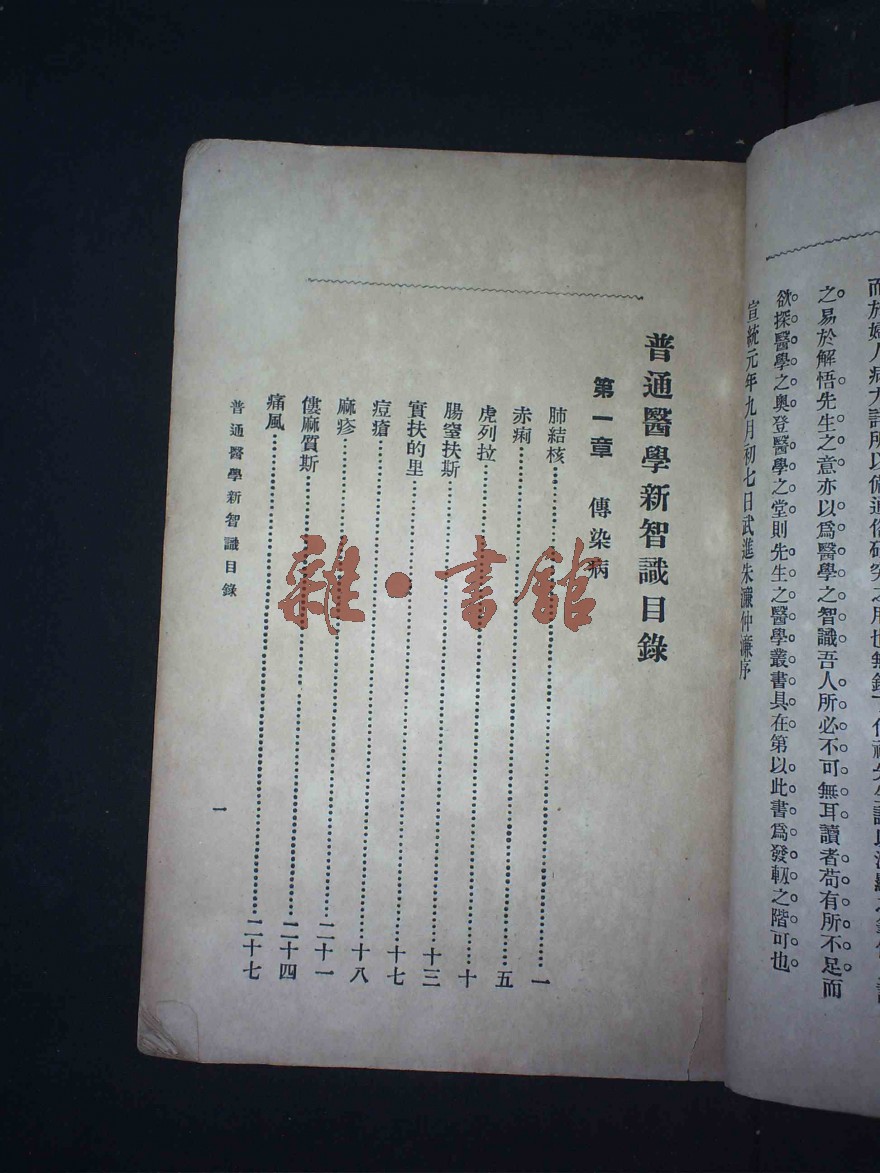 而於婦人病尤詳所以備通俗研究之用也無錫丁
之易於解悟先生之意亦以爲醫學之智識吾人所必不可無耳讀者苟有所不足而
欲探醫學之奧登醫學之堂則先生之醫學叢書具在第以此書爲發軔之階可也
宣統元年九月初七日武進朱濂仲濂序
普通醫學新智識目錄
第一章　傳染病
肺結核……一
赤痢……五
虎列拉……十
腸窒扶斯……十三
實扶的里……十七
痘瘡……十八
麻疹……二十一
僂麻質斯……二十四
痛風……二十七
普通醫學新智識目錄
一
雜·書館